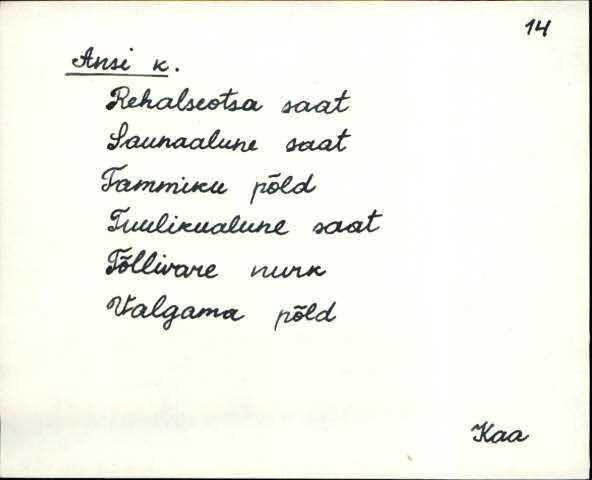 14
Ansi k.
Rehalseotsa saat
Saunaalune saat
Tammiku põld
Tuulikualune saat
Tõllivare nurk
Valgama põld
Kaa